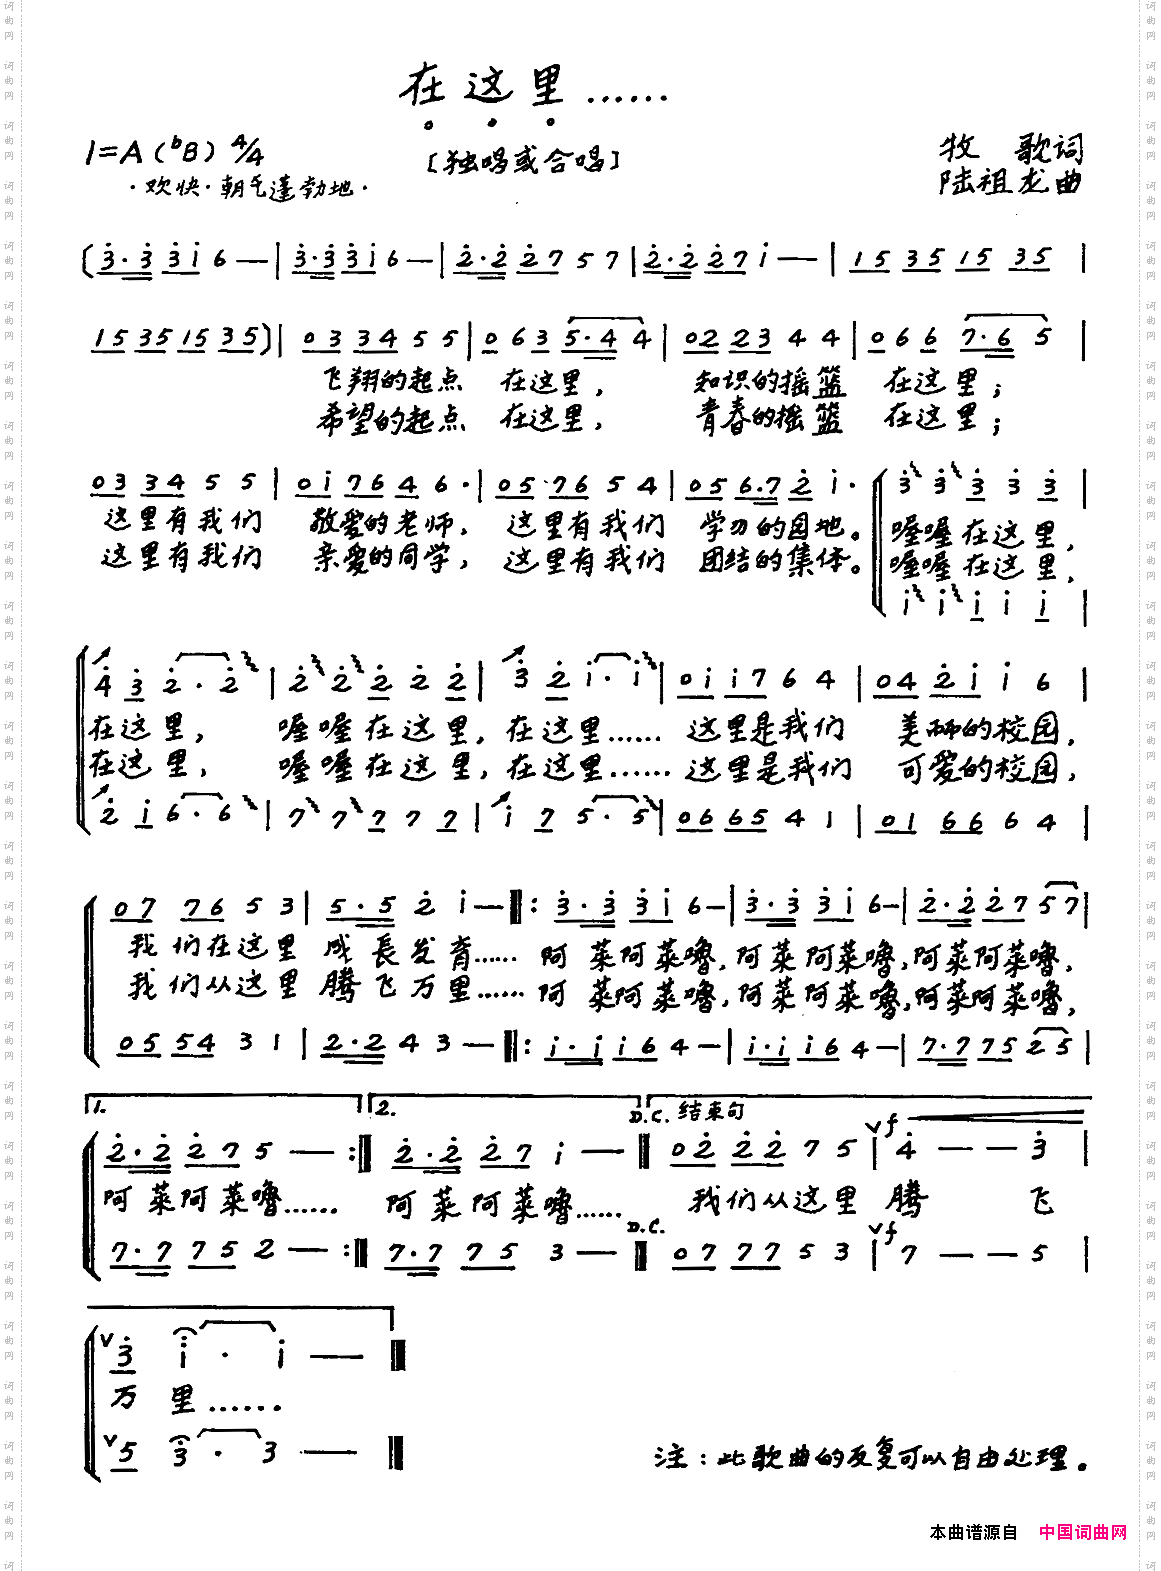 在这里……
1=A（♭B）4/4
［独唱或合唱］
牧 歌词
·欢快·朝气蓬勃地·
陆祖龙曲
(3·3 31 6 — | 3·3 31 6 — | 2·2 27 5 7 | 2·2 27 1 — | 15 35 15 35 |
15 35 15 35) | 03 34 5 5 | 0 6 3 5·4 4 | 02 23 4 4 | 0 6 6 7·6 5 |
飞翔的起点 在这里， 知识的摇篮 在这里；
希望的起点 在这里， 青春的摇篮 在这里；
03 34 5 5 | 01 76 4 6· | 05 76 5 4 | 05 6·7 2 1· | 3 3 3 3 3 |
这里有我们 敬爱的老师， 这里有我们 学习的园地。 喔喔在这里，
这里有我们 亲爱的同学， 这里有我们 团结的集体。 喔喔在这里，
1 1 1 1 1 |
4 3 2·2 | 2 2 2 2 2 | 3 2 1·1 | 01 17 6 4 | 04 21 1 6 |
在这里， 喔喔在这里，在这里…… 这里是我们 美丽的校园，
在这里， 喔喔在这里，在这里…… 这里是我们 可爱的校园，
2 1 6·6 | 7 7 7 7 7 | 1 7 5·5 | 06 65 4 1 | 01 66 6 4 |
07 76 5 3 | 5·5 2 1 — |: 3·3 31 6 — | 3·3 31 6 — | 2·2 27 57 |
我们在这里 成長发育…… 阿莱阿莱噜，阿莱阿莱噜，阿莱阿莱噜，
我们从这里 腾飞万里…… 阿莱阿莱噜，阿莱阿莱噜，阿莱阿莱噜，
05 54 3 1 | 2·2 4 3 — |: 1·1 16 4 — | 1·1 16 4 — | 7·7 75 25 |
1. 2. D.C. 结束句
2·2 27 5 — :| 2·2 27 1 — | 02 22 7 5 | ∨f 4 — — 3 |
阿莱阿莱噜…… 阿莱阿莱噜…… 我们从这里 腾 飞
D.C. ∨f
7·7 75 2 — :| 7·7 75 3 — | 07 77 5 3 | 7 — — 5 |
∨3 1 · 1 — |
万 里……
∨5 3 · 3 — |
注：此歌曲的反复可以自由处理。
本曲谱源自 中国词曲网